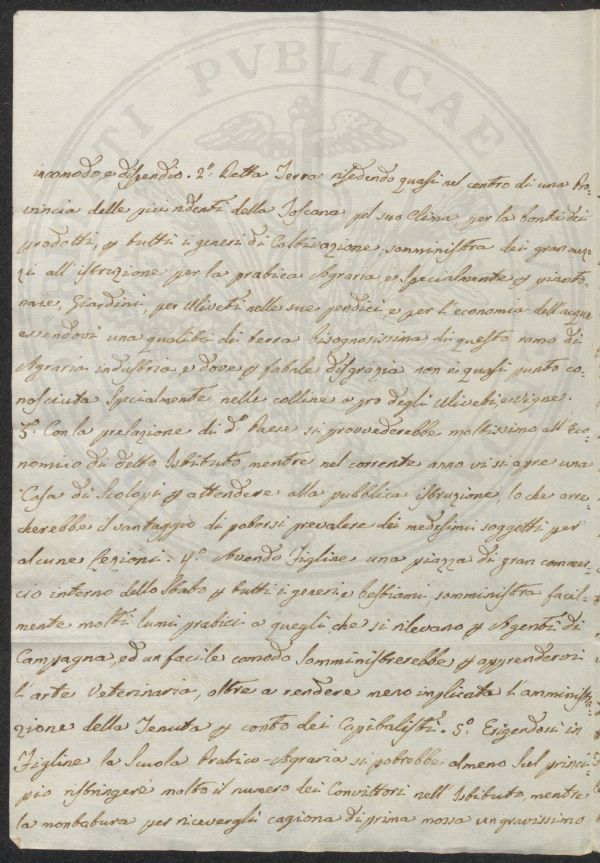 incomodo e dispendio. 2.° Detta Terra risedendo quasi nel centro di una Pro-
vincia delle più ridenti della Toscana pel suo Clima per la bontà dei
prodotti, p tutti i generi di Coltivazione, somministra dei gran mez-
zi all'istruzione per la pratica Agraria e Specialmente p pianto-
nare, Giardini, per Uliveti nelle sue pendici e per l'economia dell'acque
essendovi una qualità di terra bisognosissima di questo ramo di
Agraria industria e dove p fatale disgrazia non è quasi punto co-
nosciuta Specialmente nelle colline a pro degli Uliveti e Vigne.
3.° Con la prelazione di d.° Paese si provvederebbe moltissimo all'Eco-
nomico di detto Istituto, mentre nel corrente anno vi si apre una
Casa di Scolopi p attendere alla pubblica istruzione, lo che arre-
cherebbe il vantaggio di potersi prevalere dei medesimi soggetti per
alcune Lezioni. 4.° Avendo Figline una piazza di gran commer-
cio interno dello Stato p tutti i generi e bestiami, somministra facil-
mente molti lumi pratici a quegli che si rilevano p Agenti di
Campagna, ed un facile comodo Somministrerebbe p apprendervi
l'arte Veterinaria, oltre a rendere meno implicata l'amministra-
zione della Tenuta p conto dei Capitalisti. 5.° Erigendosi in
Figline la Scuola Pratico-Agraria si potrebbe almeno Sul princi-
pio ristringere molto il numero dei Convittori nell'Istituto, mentre
la montatura per ricevergli cagiona di prima mossa un gravissimo
PUBLICAE